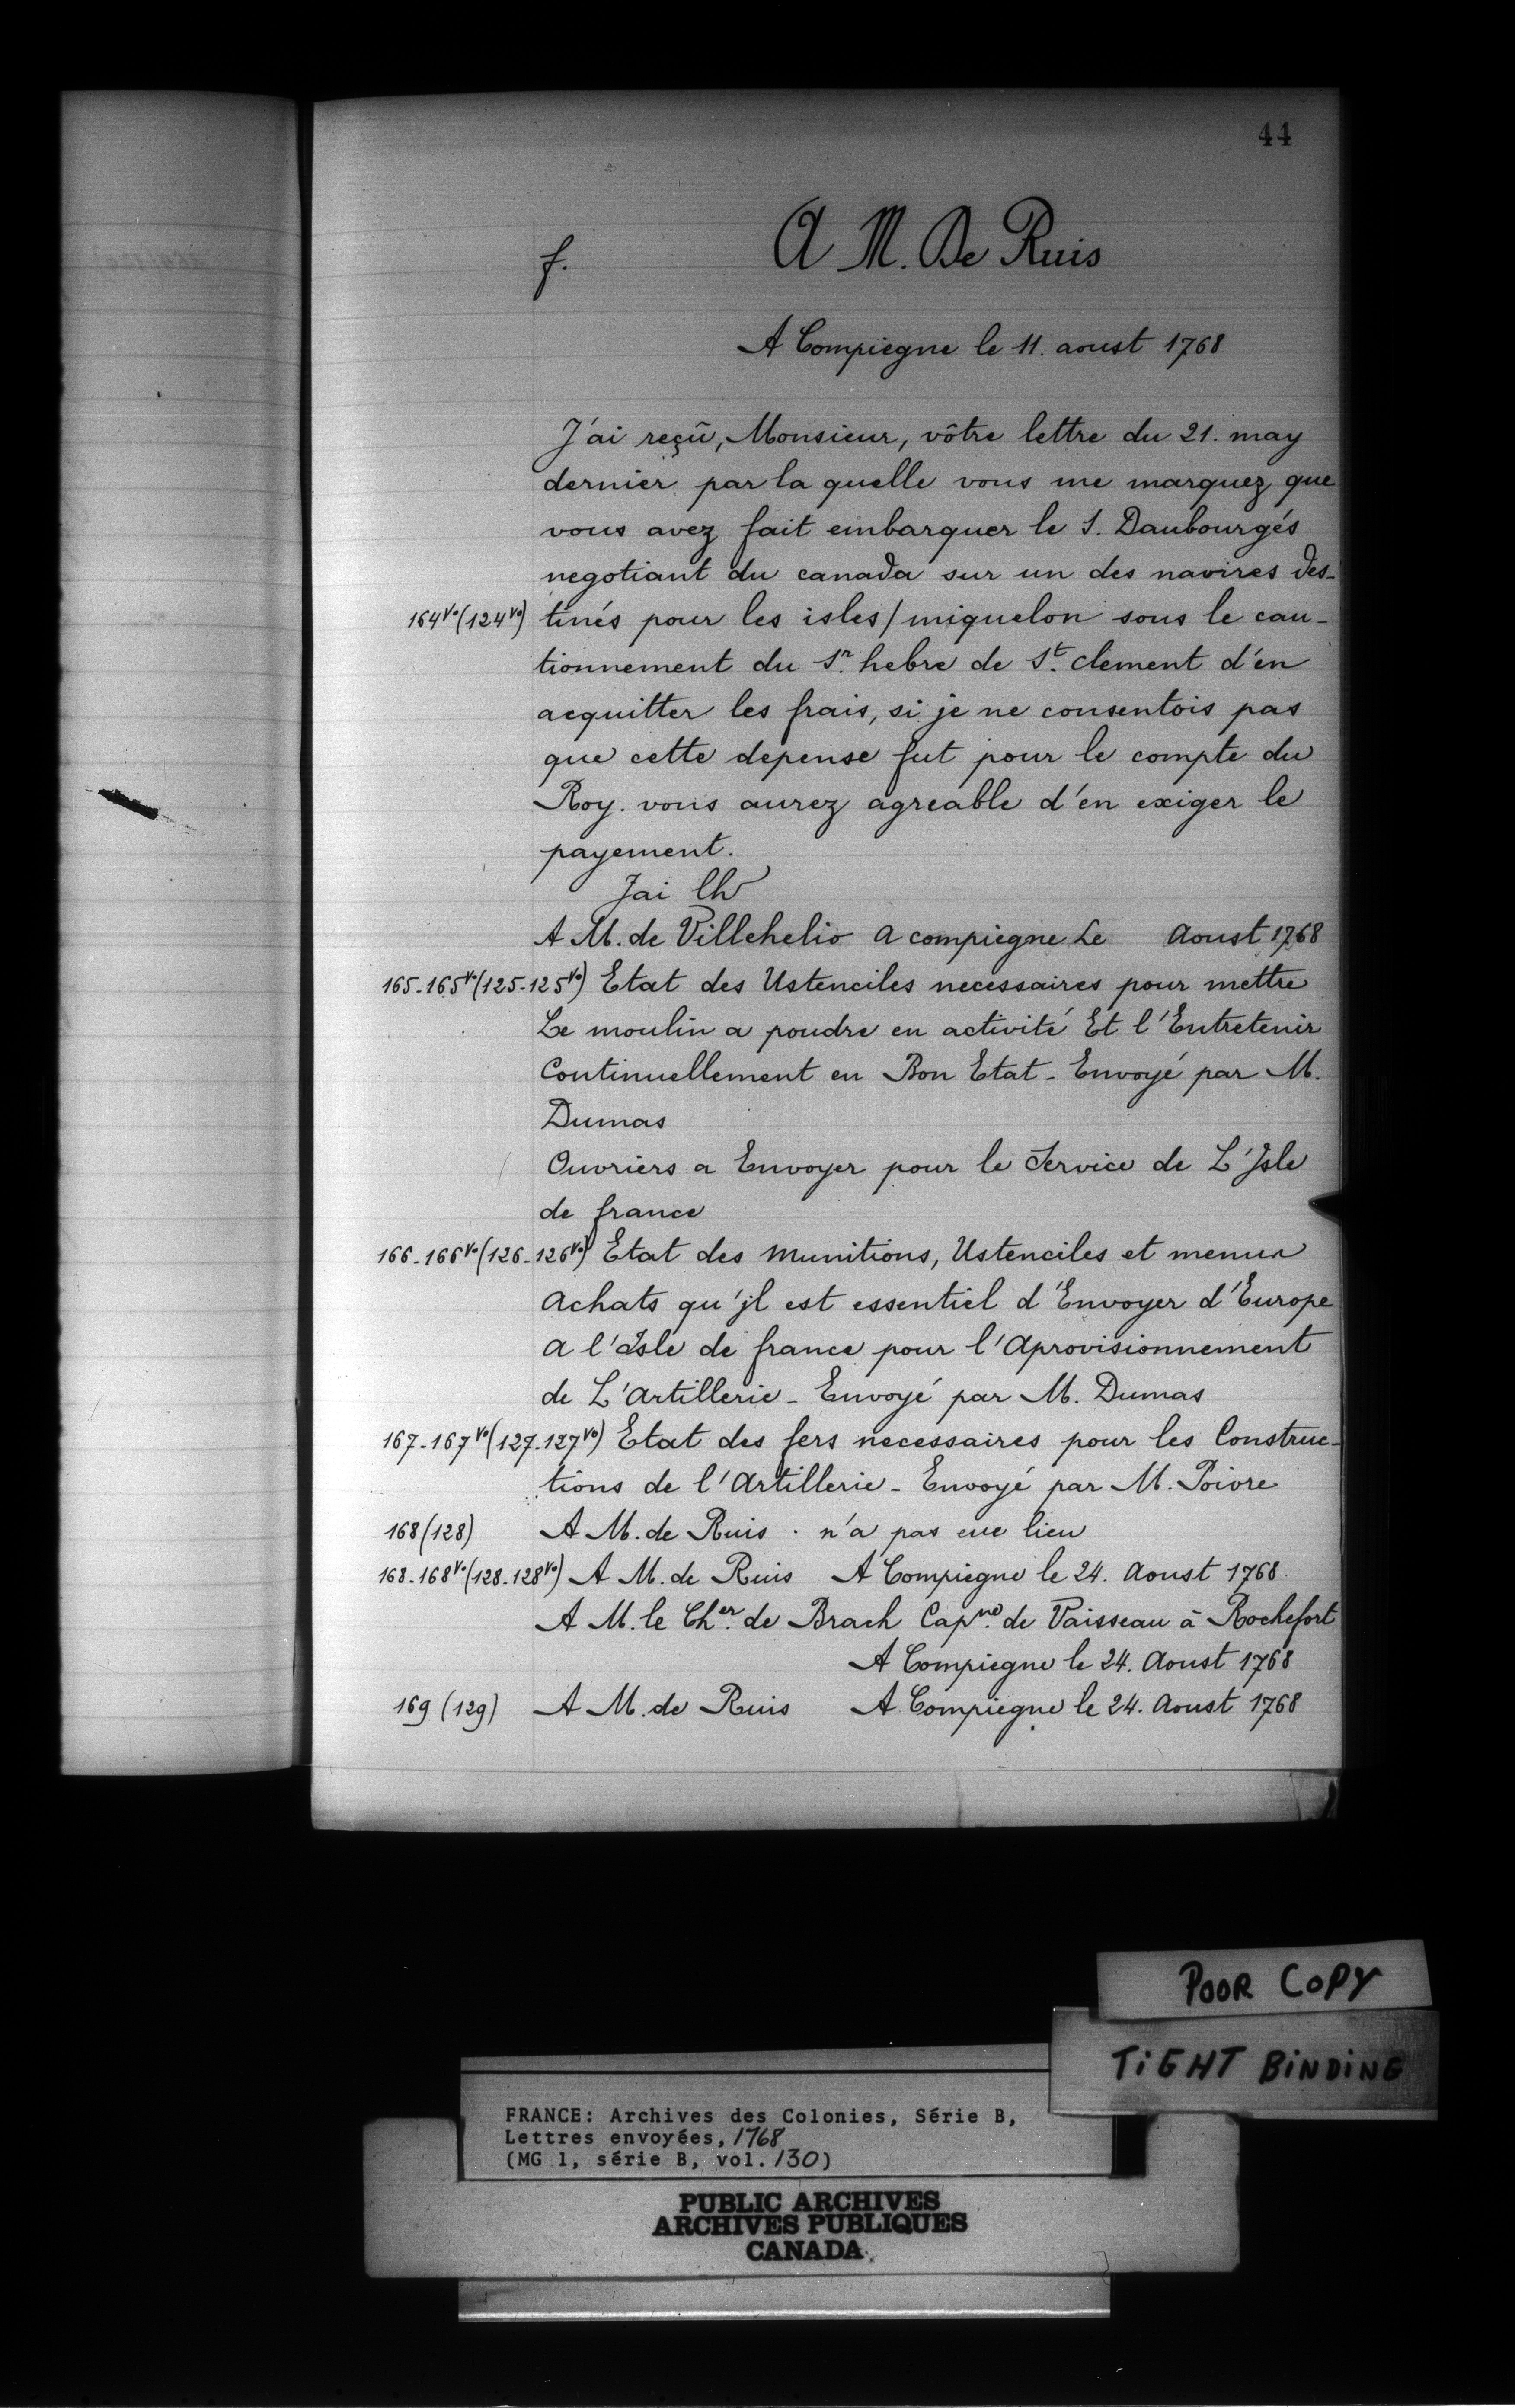 44
f. A M. De Ruis
A Compiegne le 11. aoust 1768
J'ai reçû, Monsieur, vôtre lettre du 21. may
dernier par la quelle vous me marquez que
vous avez fait embarquer le S. Daubourgés
negotiant du canada sur un des navires des-
164 vo (124 vo) tinés pour les isles / miquelon sous le cau-
tionnement du Sr. hebre de St. clement d'en
acquitter les frais, si je ne consentois pas
que cette depense fut pour le compte du
Roy. vous aurez agreable d'en exiger le
payement.
Jai
A M. de Villehelio a compiegne Le aoust 1768
165-165 vo (125-125 vo) Etat des Ustenciles necessaires pour mettre
Le moulin a poudre en activité Et l'Entretenir
Continuellement en Bon Etat - Envoyé par M.
Dumas
Ouvriers a Envoyer pour le Service de L'Isle
de france
166-166 vo (126-126 vo) Etat des munitions, Ustenciles et menus
achats qu'jl est essentiel d'Envoyer d'Europe
a l'isle de france pour l'aprovisionnement
de L'artillerie - Envoyé par M. Dumas
167-167 vo (127-127 vo) Etat des fers necessaires pour les Construc-
tions de l'artillerie - Envoyé par M. Poivre
168 (128) A M. de Ruis . n'a pas eue lieu
168-168 vo (128-128 vo) A M. de Ruis A Compiegne le 24. Aoust 1768.
A M. le Cher. de Brach Capne. de Vaisseau à Rochefort
A Compiegne le 24. Aoust 1768
169 (129) A M. de Ruis A Compiegne le 24. Aoust 1768
POOR COPY
TIGHT BINDING
FRANCE: Archives des Colonies, Série B,
Lettres envoyées, 1768
(MG 1, série B, vol. 130)
PUBLIC ARCHIVES
ARCHIVES PUBLIQUES
CANADA